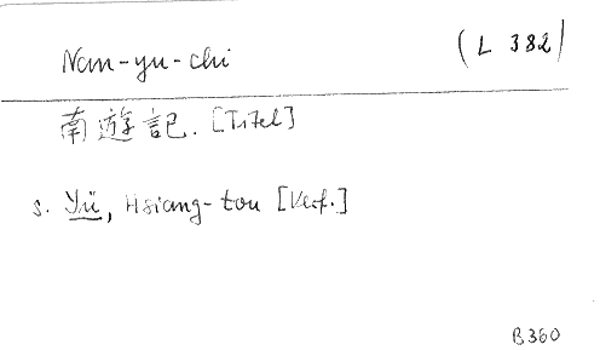 Nan-yu-chi (L 382)
南遊記. [Titel]
s. Yü, Hsiang-tou [Verf.]
B360